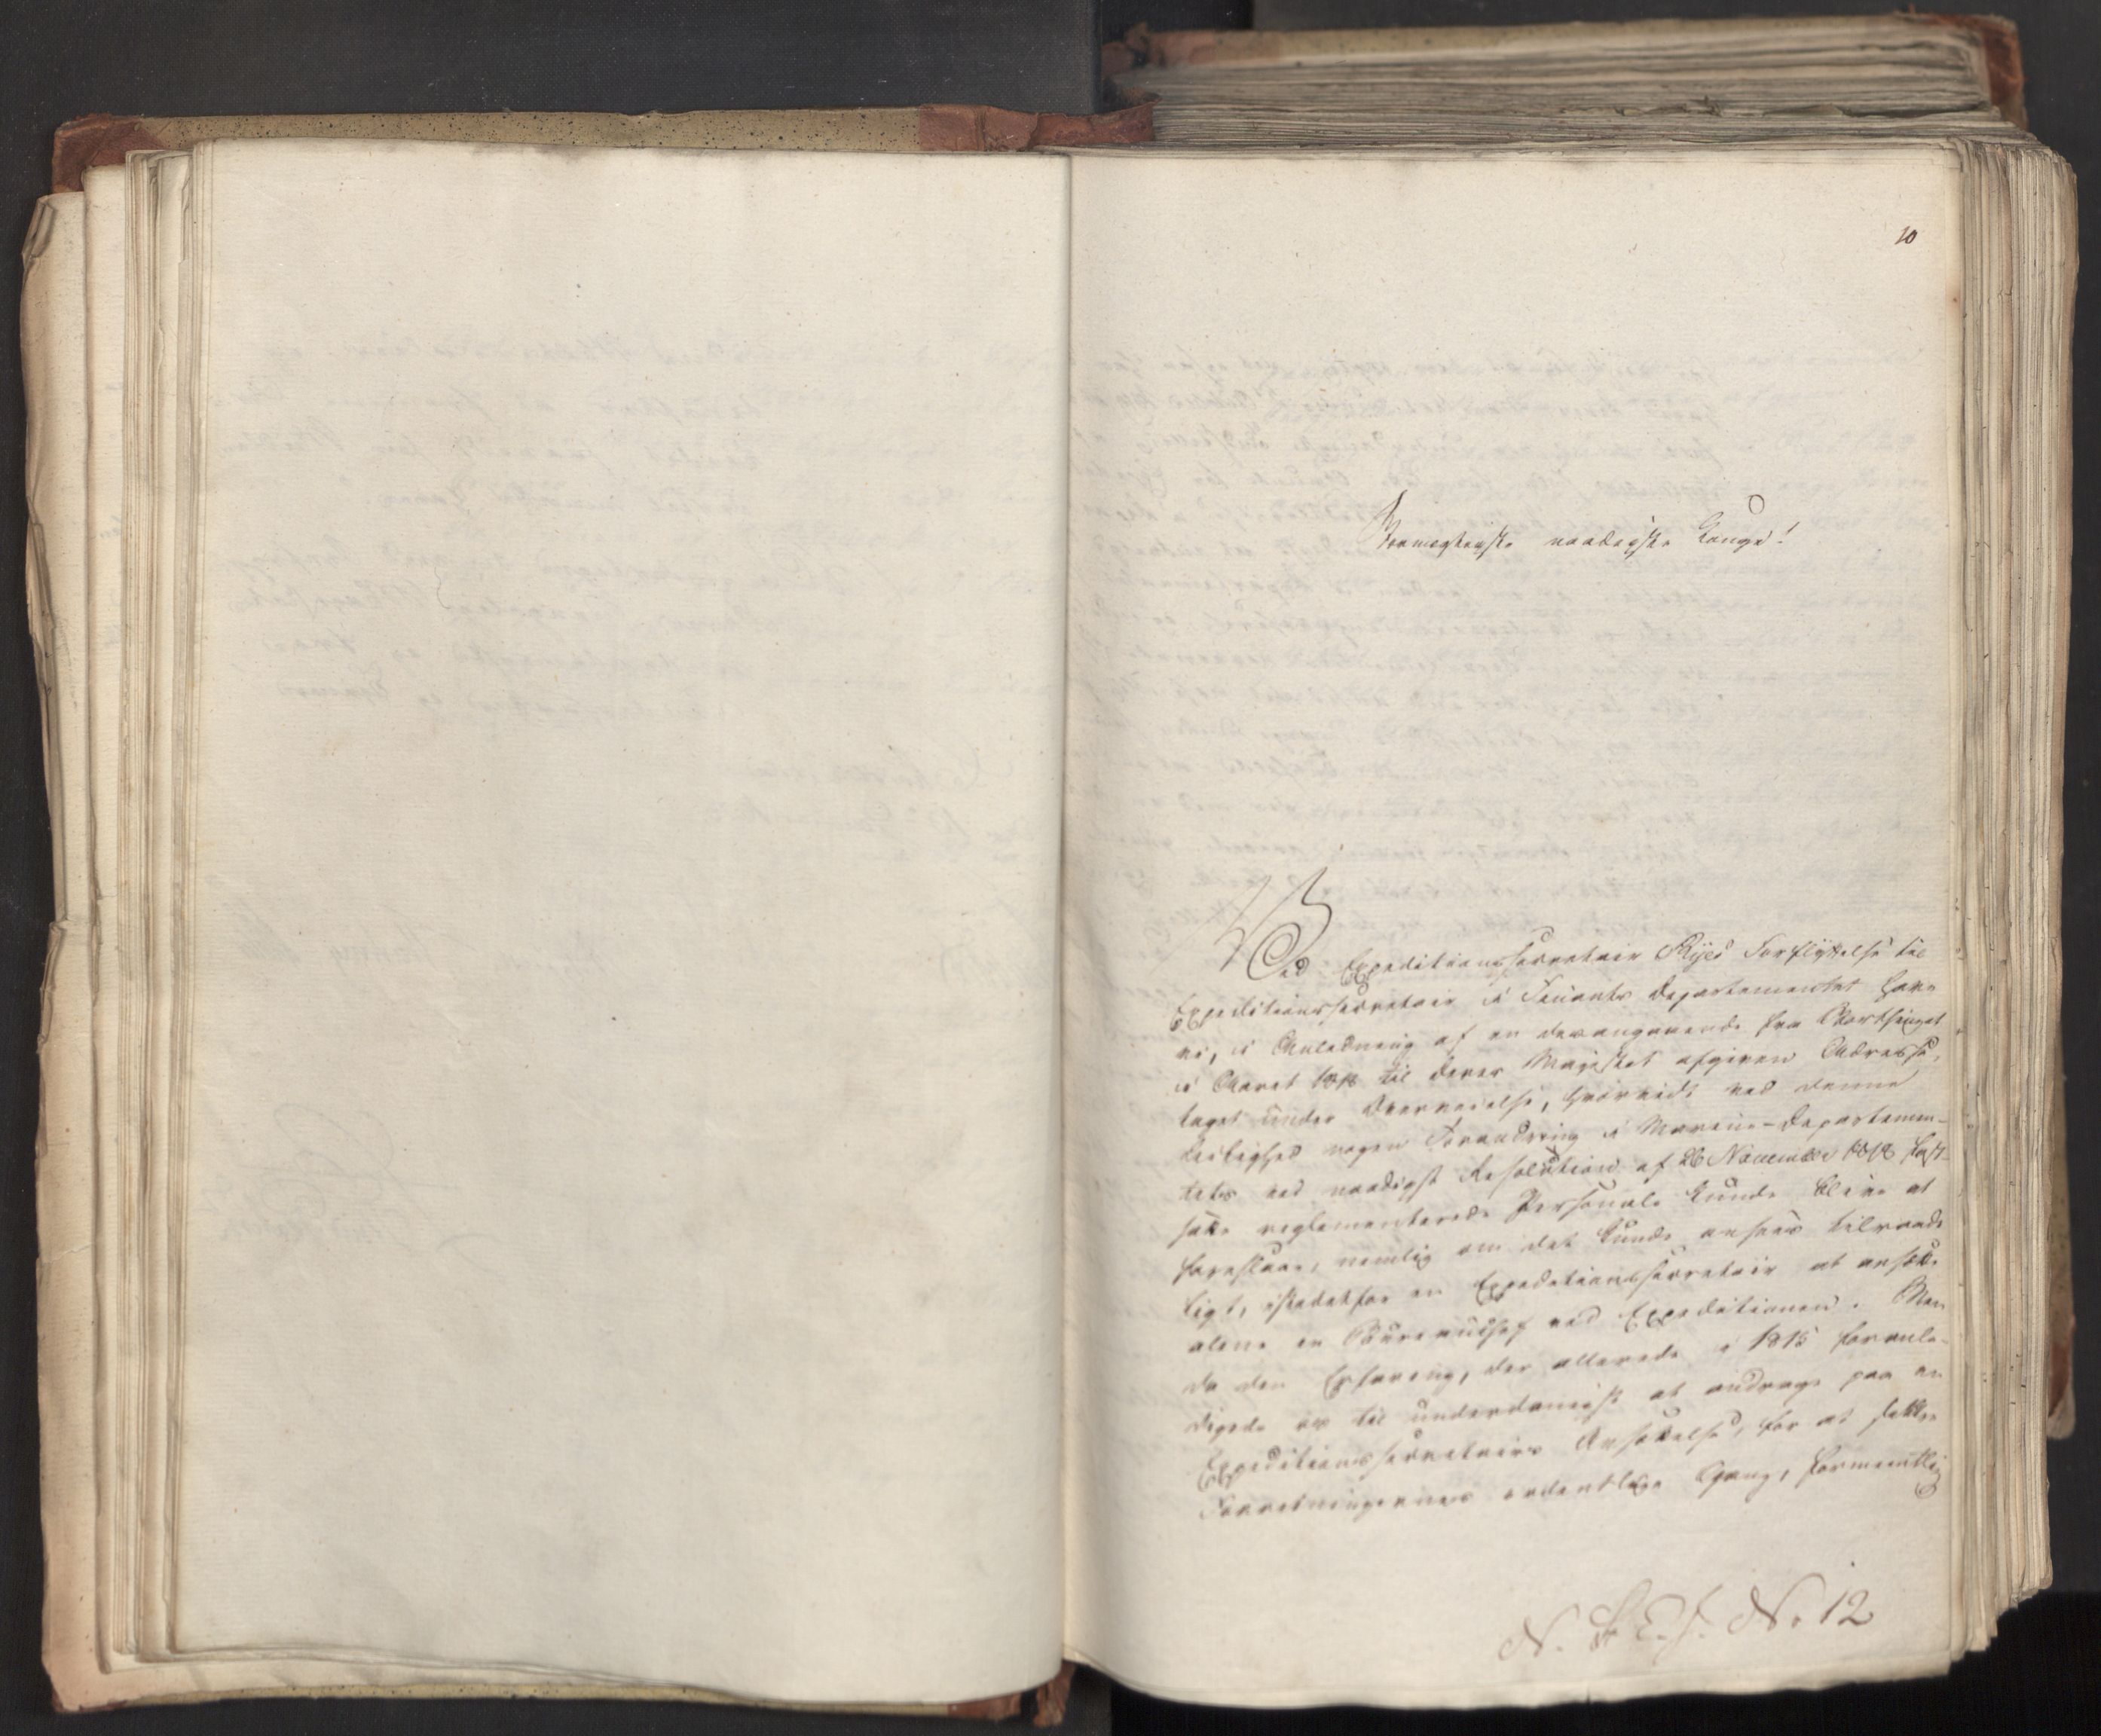 10
Stormægtigste naadigste Konge!
Ved Expeditionssecretair Ryes Forflyttelse til
Expeditionssecretair i Finants Departementet have
vi, i Anledning af en desangaaende fra Storthinget
i Aaret 1818 til Deres Majestæt afgiven Adresse,
taget under Overveielse, hvorvidt ved denne
Leilighed nogen Forandring i Marine-Departemen-
tets ved naadigst Resolution af 26 November 1818 fast-
satte reglementerede Personale kunde blive at
foreslaae, nemlig om det kunde ansees tilraade-
ligt, istedetfor en Expeditionssecretair at ansætte
alene en Bureauchef ved Expeditionen. Men
da den Erfaring, der allerede i 1815 foranle-
digede os til underdanigst at andrage paa en
Expeditionssecretairs Ansættelse, for at sætte
Forretningernes ordentlige Gang, formeentlig
N. St. E. J. No 12